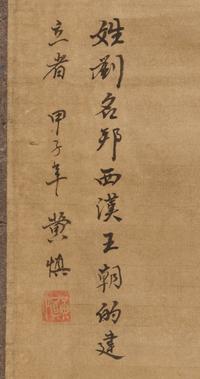 姓劉名邦西漢王朝的建
立者 甲子年 黄慎